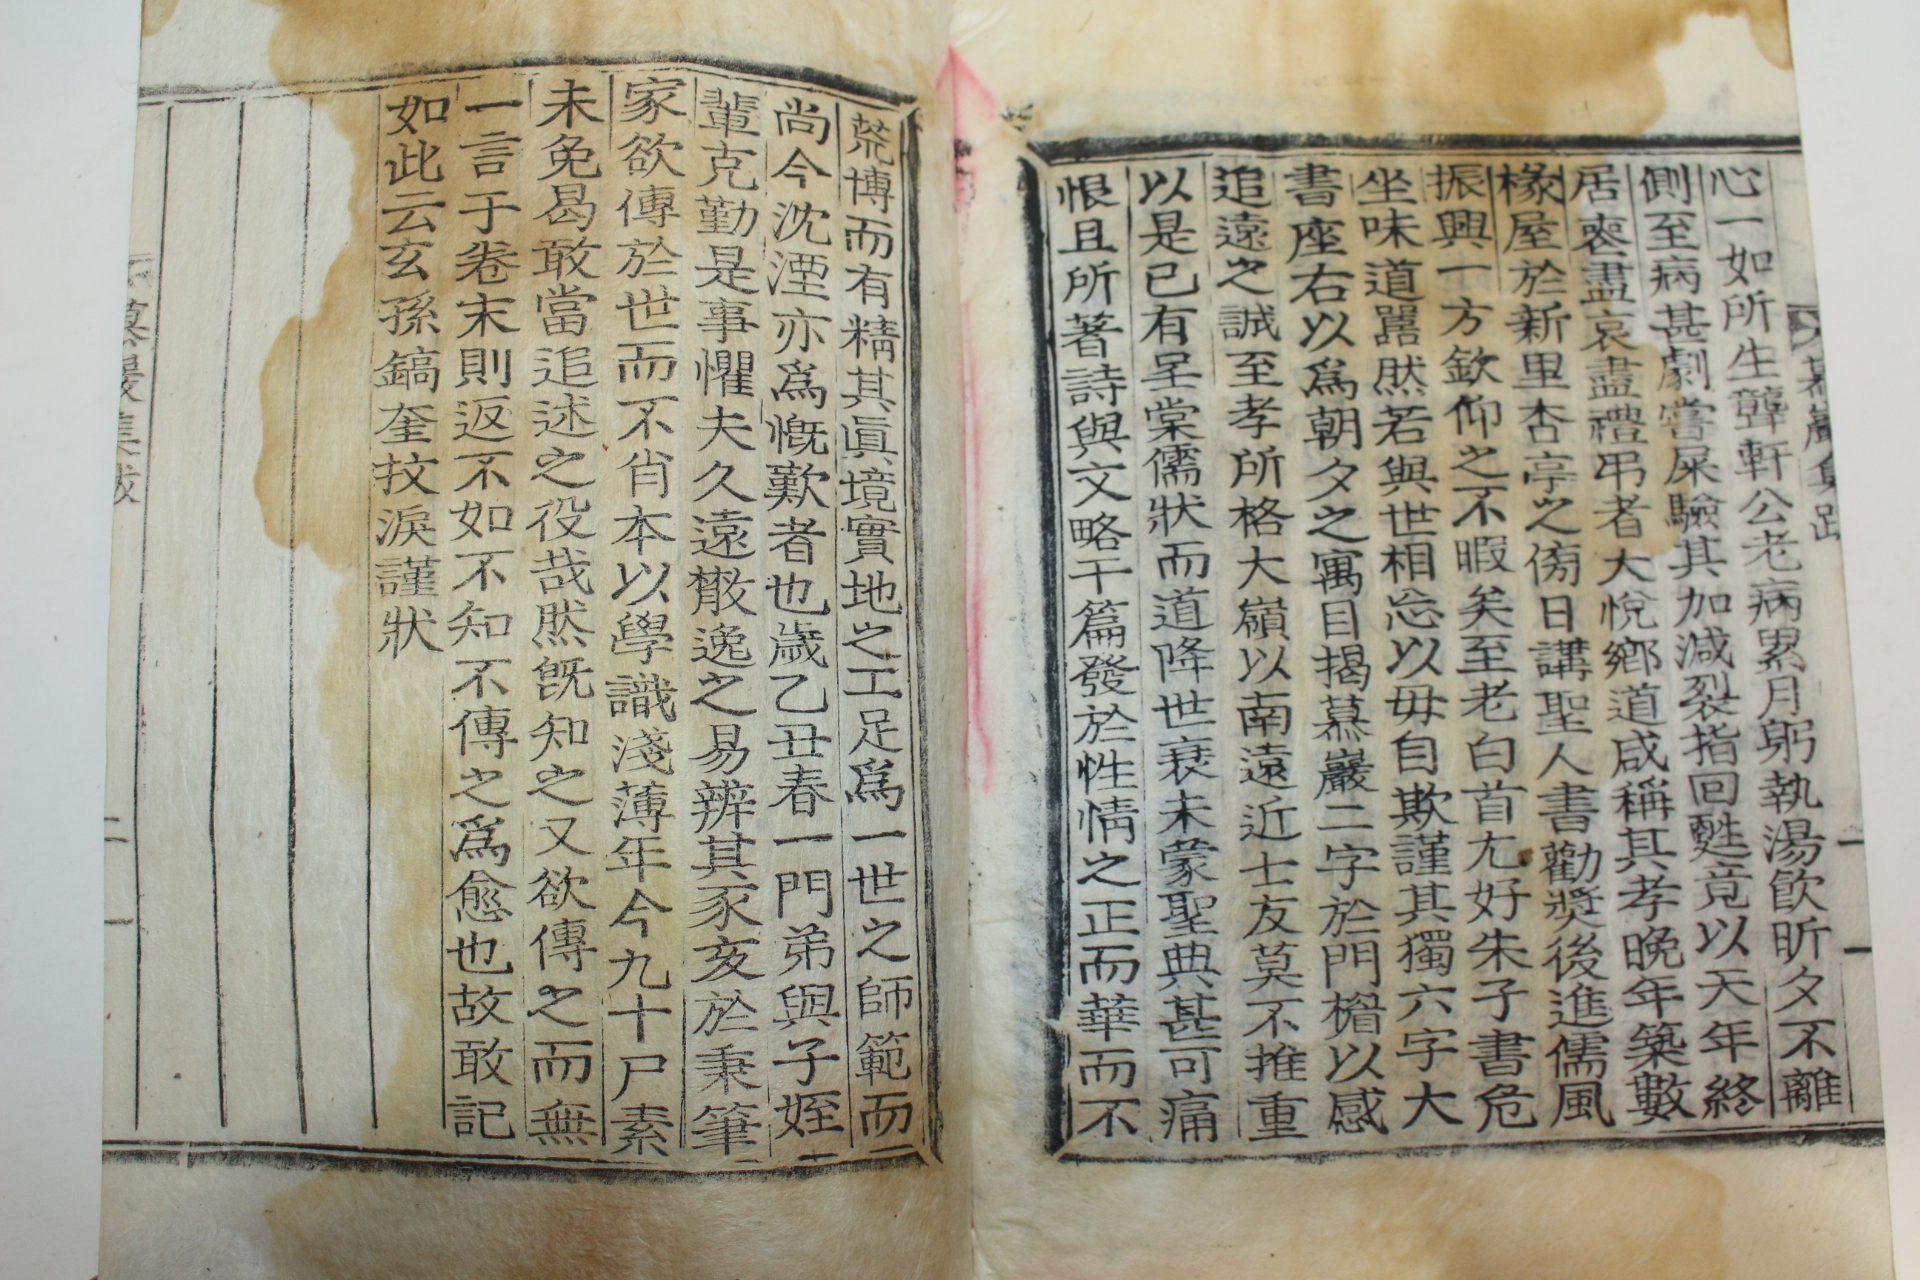 慕巖集跋
心一如所生聾軒公老病累月躬執湯飮昕夕不離
側至病甚劇嘗屎驗其加減裂指回甦竟以天年終
居喪盡哀盡禮弔者大悅鄕道咸稱其孝晩年築數
椽屋於新里杏亭之傍日講聖人書勸奬後進儒風
振興一方欽仰之不暇矣至老白首尤好朱子書危
坐味道嚣然若與世相忘以毋自欺謹其獨六字大
書座右以爲朝夕之寓目揭慕巖二字於門楣以感
追遠之誠至孝所格大嶺以南遠近士友莫不推重
以是已有呈棠儒狀而道降世衰未蒙聖典甚可痛
恨且所著詩與文略干篇發於性情之正而華而不
荒博而有精其眞境實地之工足爲一世之師範而
尚今沈湮亦爲慨歎者也歲乙丑春一門弟與子姪
輩克勤是事懼夫久遠散逸之易辨其豕亥於秉筆
家欲傳於世而不肖本以學識淺薄年今九十尸素
未免曷敢當追述之役哉然旣知之又欲傳之而無
一言于卷末則返不如不知不傳之爲愈也故敢記
如此云玄孫鎬奎抆淚謹狀
慕巖集跋
二